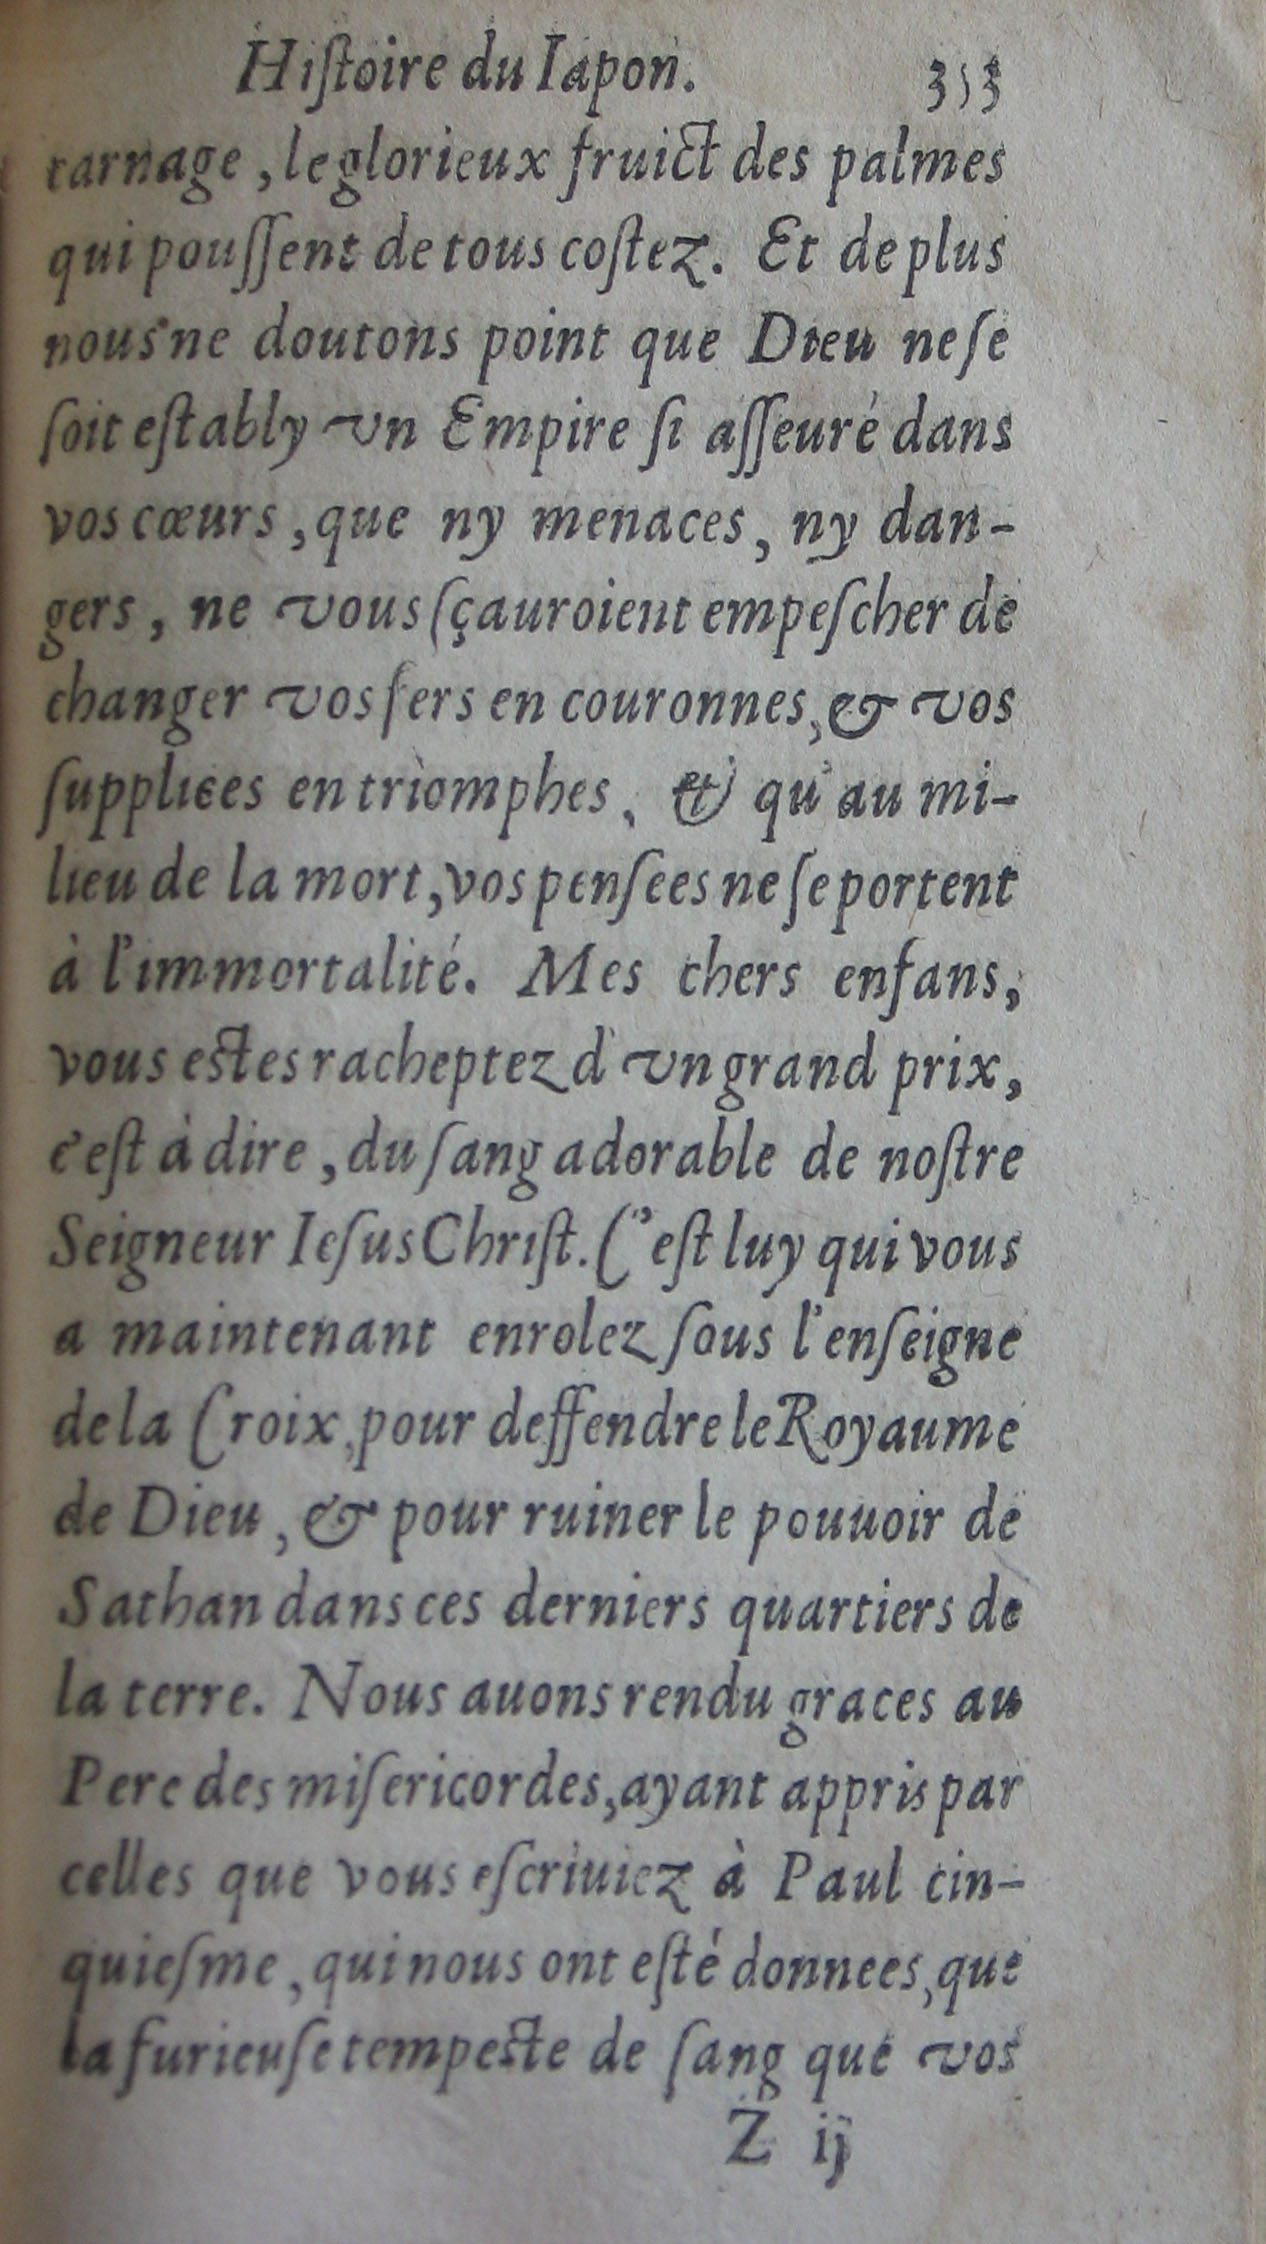 Hiſtoire du Iapon. 353
carnage, le glorieux fruict des palmes
qui pouſſent de tous coſtez. Et de plus
nous ne doutons point que Dieu ne ſe
ſoit eſtably vn Empire ſi aſſeuré dans
vos cœurs, que ny menaces, ny dan-
gers, ne vous ſçauroient empeſcher de
changer vos fers en couronnes, & vos
ſupplices en triomphes, & qu'au mi-
lieu de la mort, vos penſees ne ſe portent
à l'immortalité. Mes chers enfans,
vous eſtes racheptez d'vn grand prix,
c'eſt à dire, du ſang adorable de noſtre
Seigneur Ieſus Chriſt. C'eſt luy qui vous
a maintenant enrolez ſous l'enſeigne
de la Croix, pour deffendre le Royaume
de Dieu, & pour ruiner le pouuoir de
Sathan dans ces derniers quartiers de
la terre. Nous auons rendu graces au
Pere des miſericordes, ayant appris par
celles que vous eſcriuiez à Paul cin-
quieſme, qui nous ont eſté donnees, que
la furieuſe tempeſte de ſang que vos
Z ij